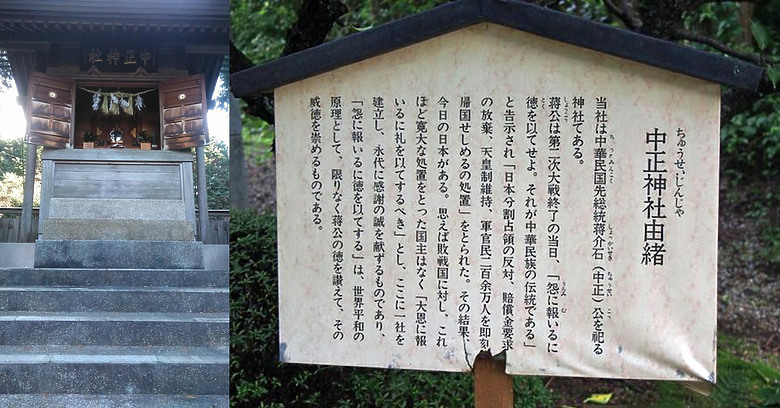 中正神社
ちゅうせいじんじゃ
中正神社由緒
当社は中華民国先総統蒋介石(中正)公を祀る
神社てある。
蒋公は第二次大戦終了の当日、「怨に報いるに
徳を以てせよ。それが中華民族の伝統である」
と告示され「日本分割占領の反対、賠償金要求
の放棄、天皇制維持、軍官民二百余万人を即刻
帰国せしめるの処置」をとられた。その結果、
今日の日本がある。思えば敗戦国に対し、これ
ほど寛大な処置をとった国主はなく「大恩に報
いるに礼を以てするべき」とし、ここに一社を
建立し、永代に感謝の誠を献ずるものであり、
「怨に報いるに徳を以てする」は、世界平和の
原理として、限りなく蒋公の徳を讃えて、その
威徳を崇めるものである。